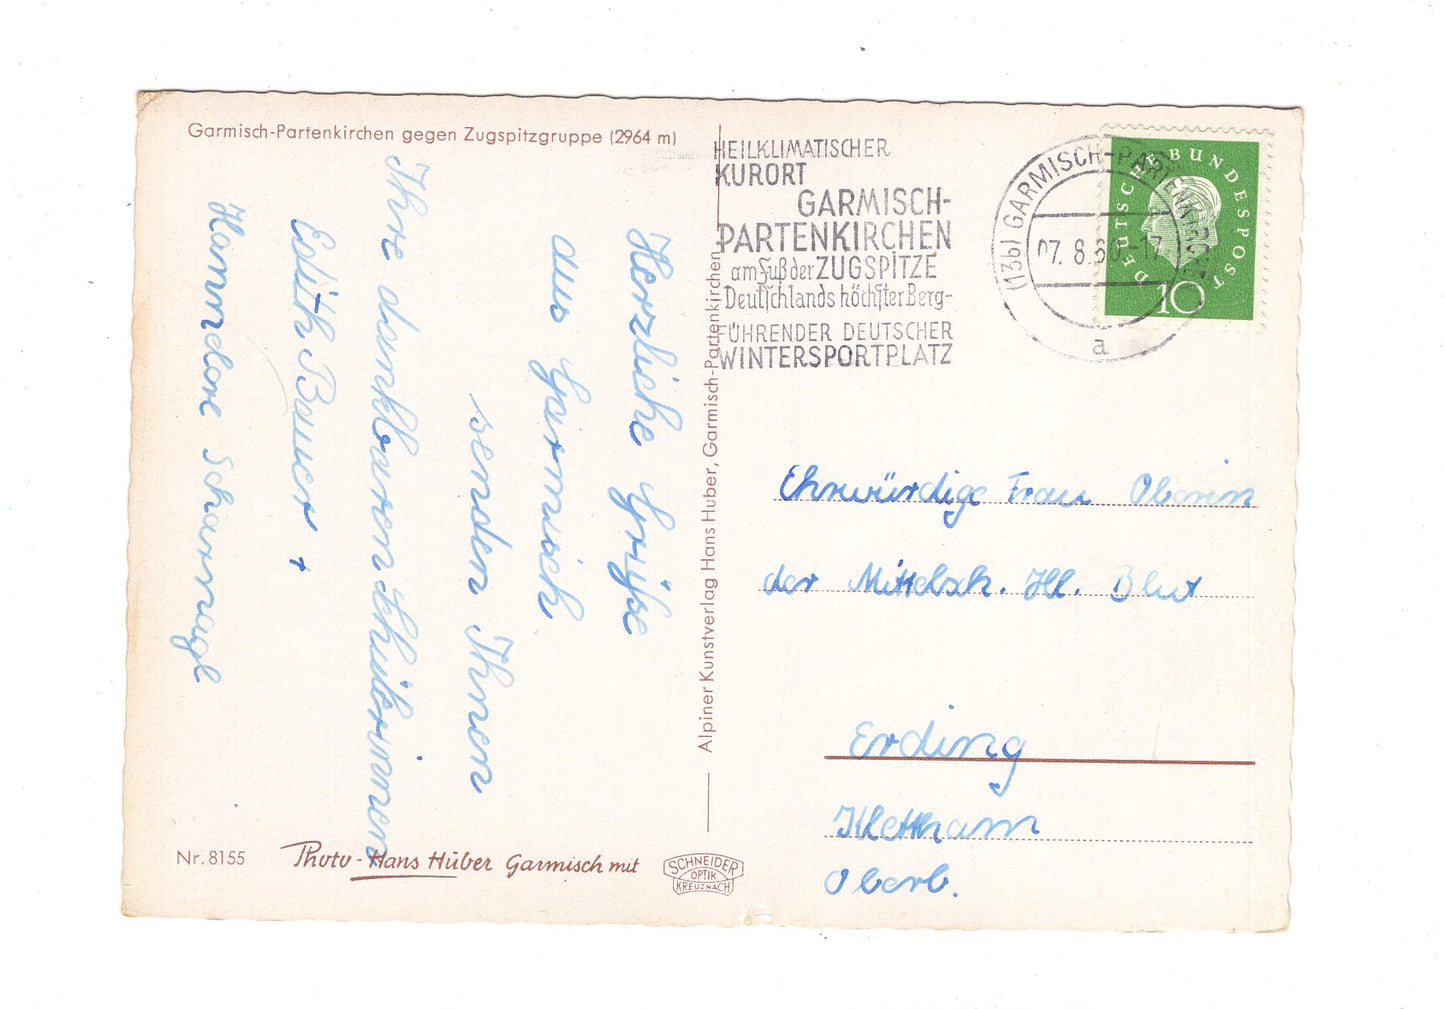 Garmisch-Partenkirchen gegen Zugspitzgruppe (2964 m)
Herzliche Grüße
aus Garmisch
senden Ihnen
Ihre dankbaren Schülerinnen
Edith Bauer +
Hannelore Scharnagl
Nr. 8155
Photo - Hans Huber Garmisch mit
SCHNEIDER
OPTIK
KREUZNACH
Alpiner Kunstverlag Hans Huber, Garmisch-Partenkirchen
HEILKLIMATISCHER
KURORT
GARMISCH-
PARTENKIRCHEN
am Fuß der ZUGSPITZE
-Deutschlands höchster Berg-
FÜHRENDER DEUTSCHER
WINTERSPORTPLATZ
(13b) GARMISCH-PARTENKIRCHEN
07.8.60-17
a
DEUTSCHE BUNDESPOST
10
Ehrwürdige Frau Oberin
der Mittelsch. Hl. Blut
Erding
Klettham
Oberb.